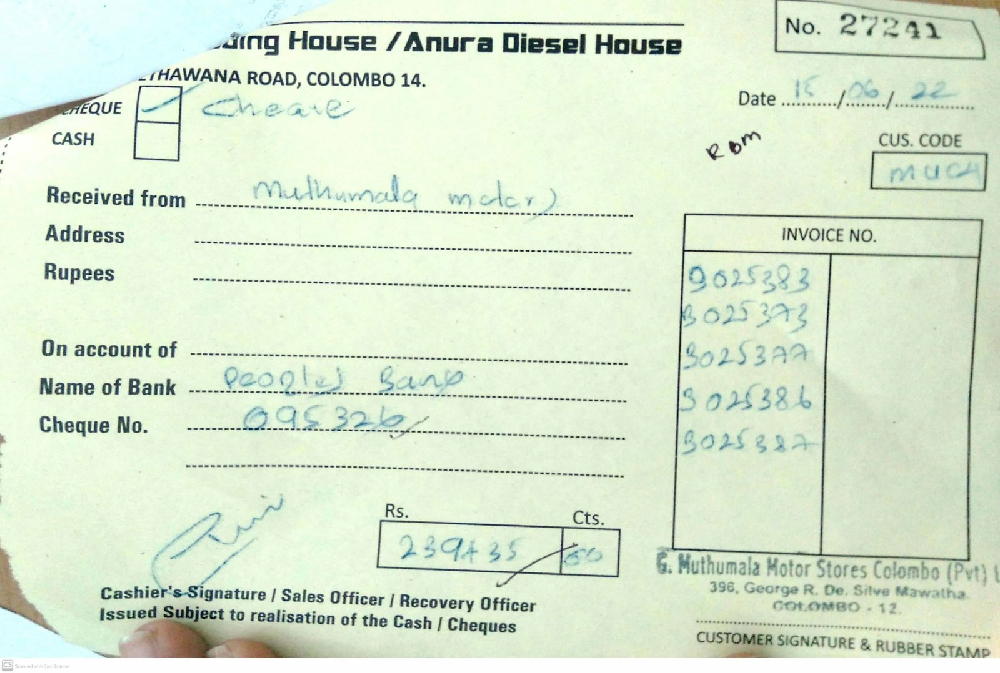 ding House / Anura Diesel House
No. 27241
THAWANA ROAD, COLOMBO 14.
CHEQUE Cheque
CASH
Date 15/06/22
RDM
CUS. CODE
MUCH
Received from Muthumala motors
Address
Rupees
INVOICE NO.
9025383
3025373
3025377
3025386
3025387
On account of
Name of Bank Peoples Bank
Cheque No. 095326
Rs. Cts.
239435 00
G. Muthumala Motor Stores Colombo (Pvt)
396, George R. De. Silva Mawatha.
COLOMBO - 12.
Cashier's Signature / Sales Officer / Recovery Officer
Issued Subject to realisation of the Cash / Cheques
CUSTOMER SIGNATURE & RUBBER STAMP